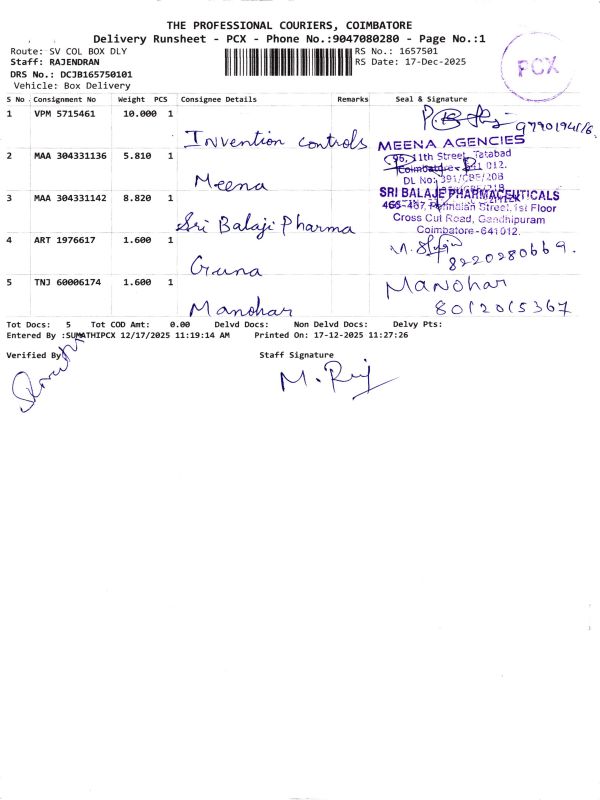 THE PROFESSIONAL COURIERS, COIMBATORE
Delivery Runsheet - PCX - Phone No.:9047080280 - Page No.:1
Route: SV COL BOX DLY
Staff: RAJENDRAN
DRS No.: DCJB165750101
Vehicle: Box Delivery
RS No.: 1657501
RS Date: 17-Dec-2025
PCX
S No Consignment No Weight PCS Consignee Details Remarks Seal & Signature
1 VPM 5715461 10.000 1
Invention controls
2 MAA 304331136 5.810 1
Meena
MEENA AGENCIES
96, 11th Street, Tatabad
Coimbatore - 641 012.
DL No: 391/CBE/20B
3 MAA 304331142 8.820 1
Sri Balaji Pharma
SRI BALAJE PHARMACEUTICALS
466-467, Street, 1st Floor
Cross Cut Road, Gandhipuram
Coimbatore-641012.
4 ART 1976617 1.600 1
Guna
8220280669.
5 TNJ 60006174 1.600 1
Manohar
Manohar
8012015367
Tot Docs: 5 Tot COD Amt: 0.00 Delvd Docs: Non Delvd Docs: Delvy Pts:
Entered By :SUMATHIPCX 12/17/2025 11:19:14 AM Printed On: 17-12-2025 11:27:26
Verified By
Staff Signature